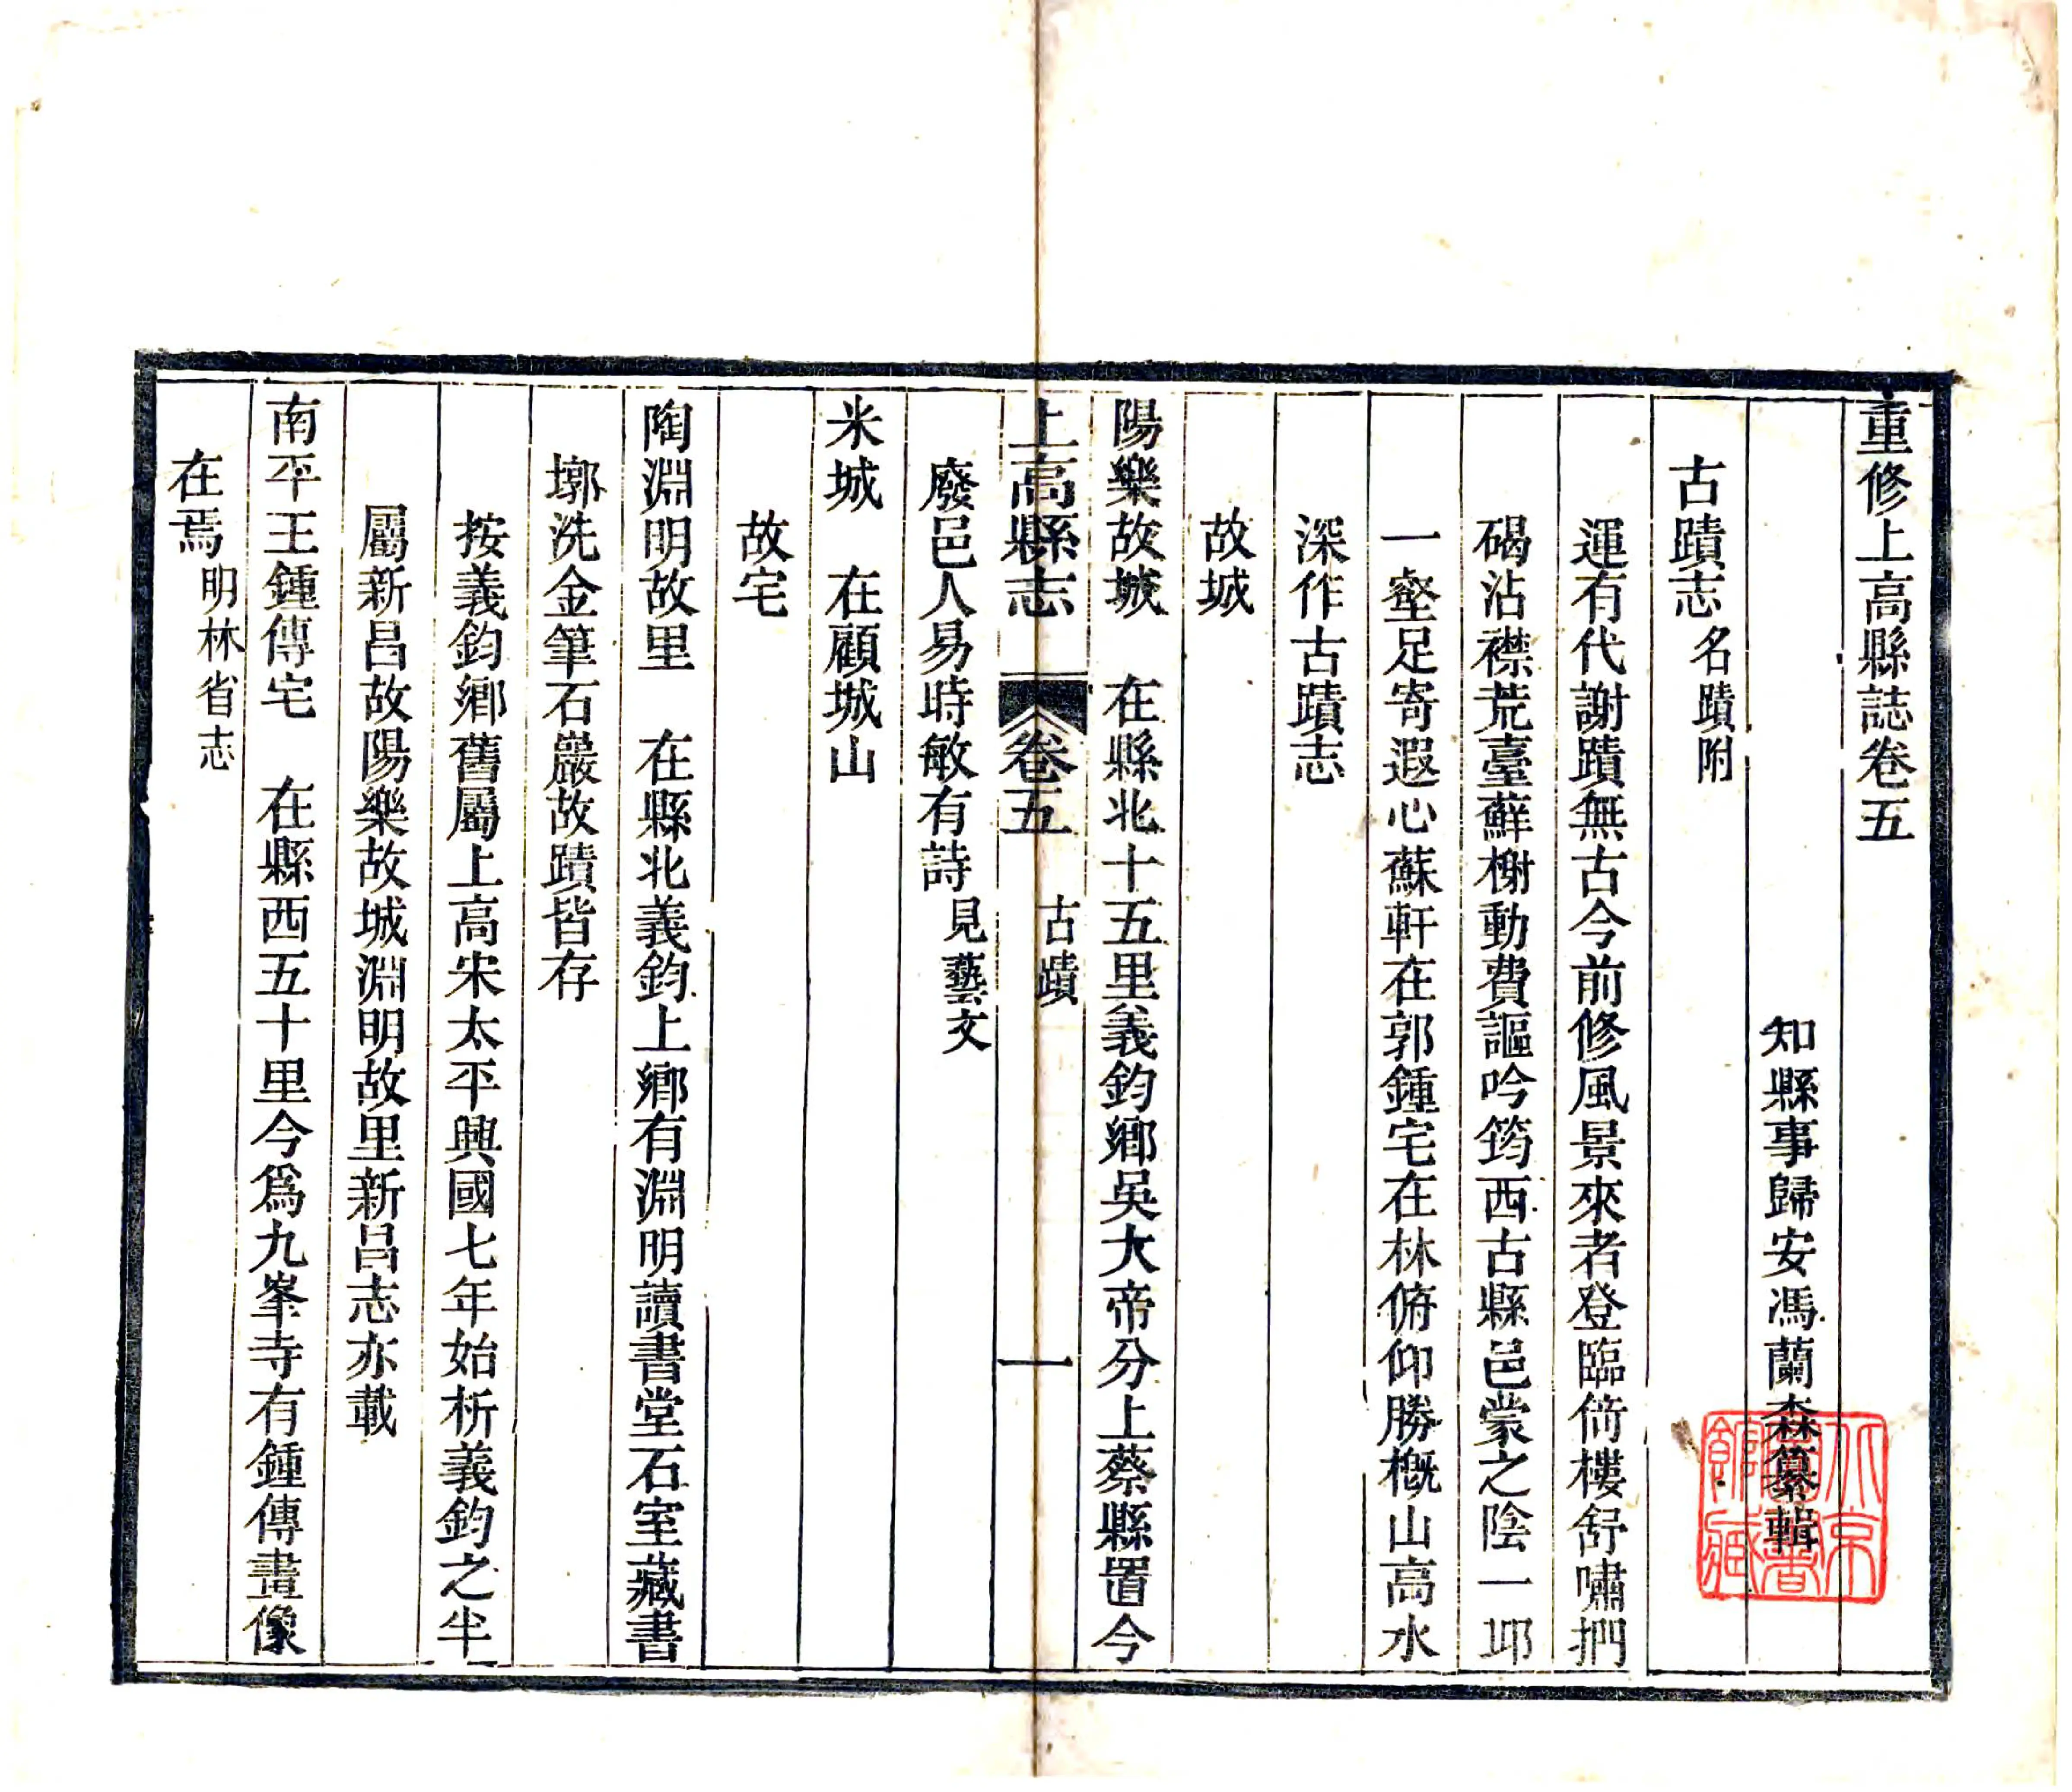 重修上高縣誌卷五
知縣事歸安馮蘭森纂輯
古蹟志 名蹟附
運有代謝蹟無古今前修風景來者登臨倚樓舒嘯捫
碣沾襟荒臺蘚榭動費謳吟筠西古縣邑蒙之陰一邱
一壑足寄遐心蘇軒在郭鍾宅在林俯仰勝概山高水
深作古蹟志
故城
陽樂故城 在縣北十五里義鈞鄉吳大帝分上蔡縣置今
上高縣志 卷五 古蹟 一
廢邑人易時敏有詩 見藝文
米城 在顧城山
故宅
陶淵明故里 在縣北義鈞上鄉有淵明讀書堂石室藏書
墎洗金筆石巖故蹟皆存
按義鈞鄉舊屬上高宋太平興國七年始析義鈞之半
屬新昌故陽樂故城淵明故里新昌志亦載
南平王鍾傳宅 在縣西五十里今爲九峯寺有鍾傳畫像
在焉 明林省志
北京圖書館藏